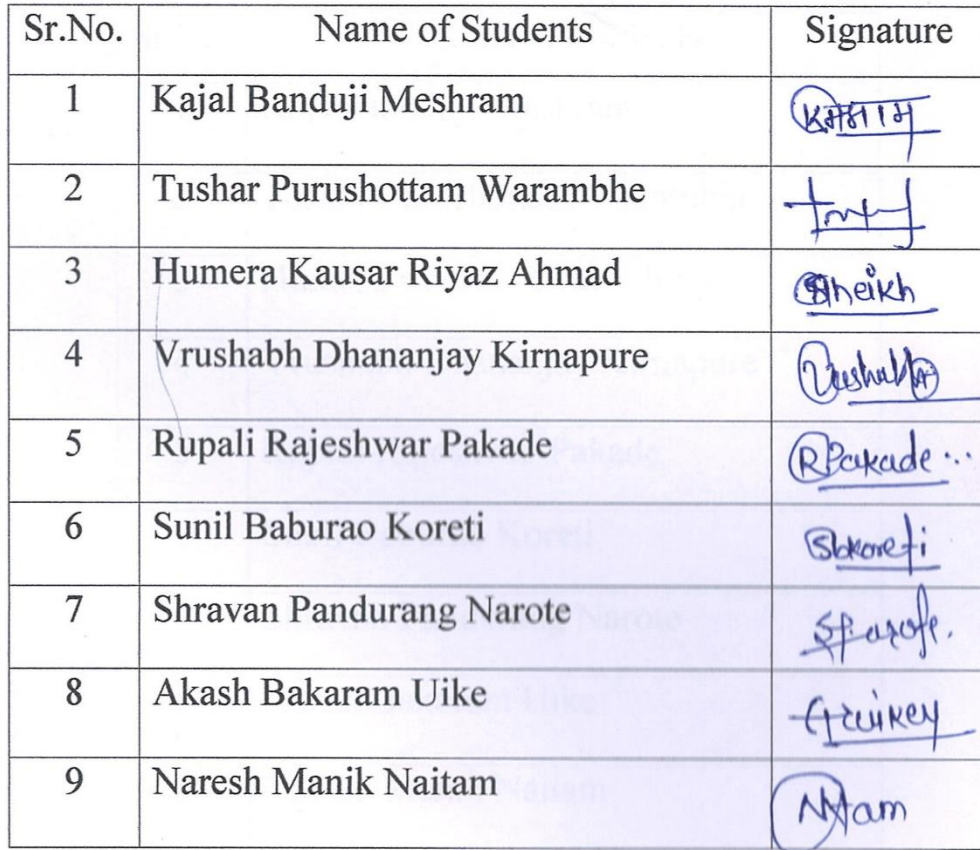 Sr.No. Name of Students Signature
1 Kajal Banduji Meshram
2 Tushar Purushottam Warambhe
3 Humera Kausar Riyaz Ahmad Sheikh
4 Vrushabh Dhananjay Kirnapure
5 Rupali Rajeshwar Pakade RPakade..
6 Sunil Baburao Koreti Sbkoreti
7 Shravan Pandurang Narote
8 Akash Bakaram Uike
9 Naresh Manik Naitam